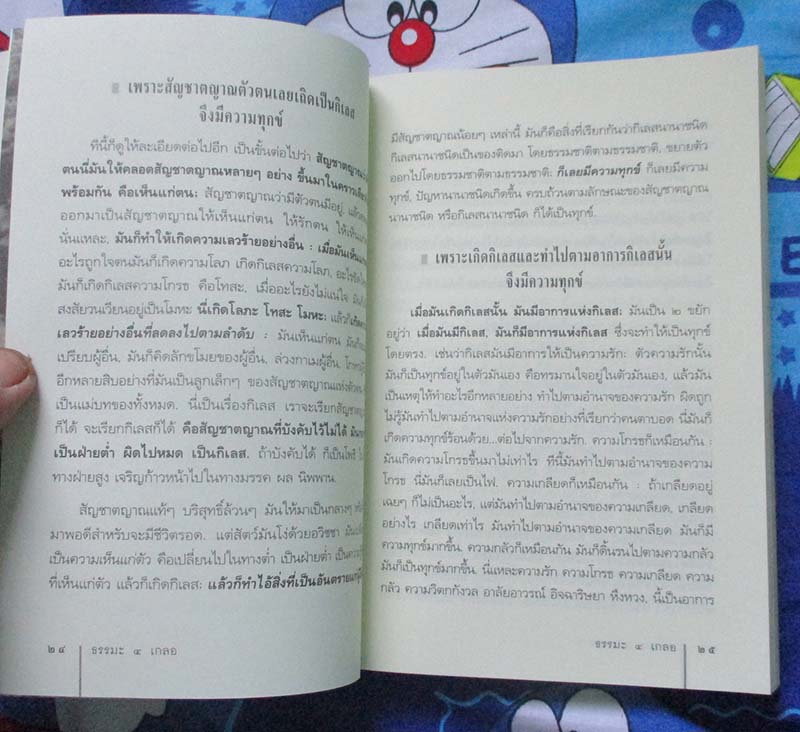 เพราะสัญชาตญาณตัวตนเลยเถิดเป็นกิเลส
จึงมีความทุกข์
ทีนี้ก็ดูให้ละเอียดต่อไปอีก เป็นชั้นต่อไปว่า สัญชาตญาณ
ตนนี่มันให้คลอดสัญชาตญาณหลายๆ อย่าง ขึ้นมาในคราวเดียว
พร้อมกัน คือเห็นแก่ตน: สัญชาตญาณว่ามีตัวตนมีอยู่, แล้ว
ออกมาเป็นสัญชาตญาณให้เห็นแก่ตน ให้รักตน ให้เห็นแก่
นั่นแหละ, มันก็ทำให้เกิดความเลวร้ายอย่างอื่น : เมื่อมันเห็นแก่
อะไรถูกใจตนมันก็เกิดความโลภ เกิดกิเลสความโลภ, อะไร
มันก็เกิดกิเลสความโกรธ คือโทสะ, เมื่ออะไรยังไม่แน่ใจ
สงสัยวนเวียนอยู่เป็นโมหะ นี่เกิดโลภะ โทสะ โมหะ; แล้วก็
เลวร้ายอย่างอื่นที่ลดลงไปตามลำดับ : มันเห็นแก่ตน มันก็
เปรียบผู้อื่น, มันก็คิดลักขโมยของผู้อื่น, ล่วงกาเมผู้อื่น,
อีกหลายสิบอย่างที่มันเป็นลูกเล็กๆ ของสัญชาตญาณแห่งตัว
เป็นแม่บทของทั้งหมด. นี่เป็นเรื่องกิเลส เราจะเรียกสัญชาตญาณ
ก็ได้ จะเรียกกิเลสก็ได้ คือสัญชาตญาณที่บังคับไว้ไม่ได้
เป็นฝ่ายต่ำ ผิดไปหมด เป็นกิเลส. ถ้าบังคับได้ ก็เป็นโพธิ
ทางฝ่ายสูง เจริญก้าวหน้าไปในทางมรรค ผล นิพพาน.
สัญชาตญาณแท้ๆ บริสุทธิ์ล้วนๆ มันให้มาเป็นกลางๆ
มาพอดีสำหรับจะมีชีวิตรอด. แต่สัตว์มันโง่ด้วยอวิชชา
เป็นความเห็นแก่ตัว คือเปลี่ยนไปในทางต่ำ เป็นฝ่ายต่ำ
ที่เห็นแก่ตัว แล้วก็เกิดกิเลส; แล้วก็ทำไอ้สิ่งที่เป็นอันตราย
๒๔ ธรรมะ ๔ เกลอ
มีสัญชาตญาณน้อยๆ เหล่านี้ มันก็คือสิ่งที่เรียกกันว่ากิเลสนานาชนิด
กิเลสนานาชนิดเป็นของติดมา โดยธรรมชาติตามธรรมชาติ, ขยายตัว
ออกไปโดยธรรมชาติตามธรรมชาติ; ก็เลยมีความทุกข์ ก็เลยมีความ
ทุกข์, ปัญหานานาชนิดเกิดขึ้น ครบถ้วนตามลักษณะของสัญชาตญาณ
นานาชนิด หรือกิเลสนานาชนิด ก็ได้เป็นทุกข์.
เพราะเกิดกิเลสและทำไปตามอาการกิเลสนั้น
จึงมีความทุกข์
เมื่อมันเกิดกิเลสนั้น มันมีอาการแห่งกิเลส; มันเป็น ๒ ขยัก
อยู่ว่า เมื่อมันมีกิเลส, มันก็มีอาการแห่งกิเลส ซึ่งจะทำให้เป็นทุกข์
โดยตรง. เช่นว่ากิเลสมันมีอาการให้เป็นความรัก; ตัวความรักนั้น
มันก็เป็นทุกข์อยู่ในตัวมันเอง คือทรมานใจอยู่ในตัวมันเอง, แล้วมัน
เป็นเหตุให้ทำอะไรอีกหลายอย่าง ทำไปตามอำนาจของความรัก ผิดถูก
ไม่รู้มันทำไปตามอำนาจแห่งความรักอย่างที่เรียกว่าคนตาบอด นี่มันก็
เกิดความทุกข์ร้อนด้วย...ต่อไปจากความรัก. ความโกรธก็เหมือนกัน :
มันเกิดความโกรธขึ้นมาไม่เท่าไร ทีนี้มันทำไปตามอำนาจของความ
โกรธ นี่มันก็เลยเป็นไฟ. ความเกลียดก็เหมือนกัน : ถ้าเกลียดอยู่
เฉยๆ ก็ไม่เป็นอะไร, แต่มันทำไปตามอำนาจของความเกลียด, เกลียด
อย่างไร เกลียดเท่าไร มันทำไปตามอำนาจของความเกลียด มันก็มี
ความทุกข์มากขึ้น. ความกลัวก็เหมือนกัน, มันก็ดิ้นรนไปตามความกลัว
มันก็เป็นทุกข์มากขึ้น. นี่แหละความรัก ความโกรธ ความเกลียด ความ
กลัว ความวิตกกังวล อาลัยอาวรณ์ อิจฉาริษยา หึงหวง, นี้เป็นอาการ
ธรรมะ ๔ เกลอ ๒๕